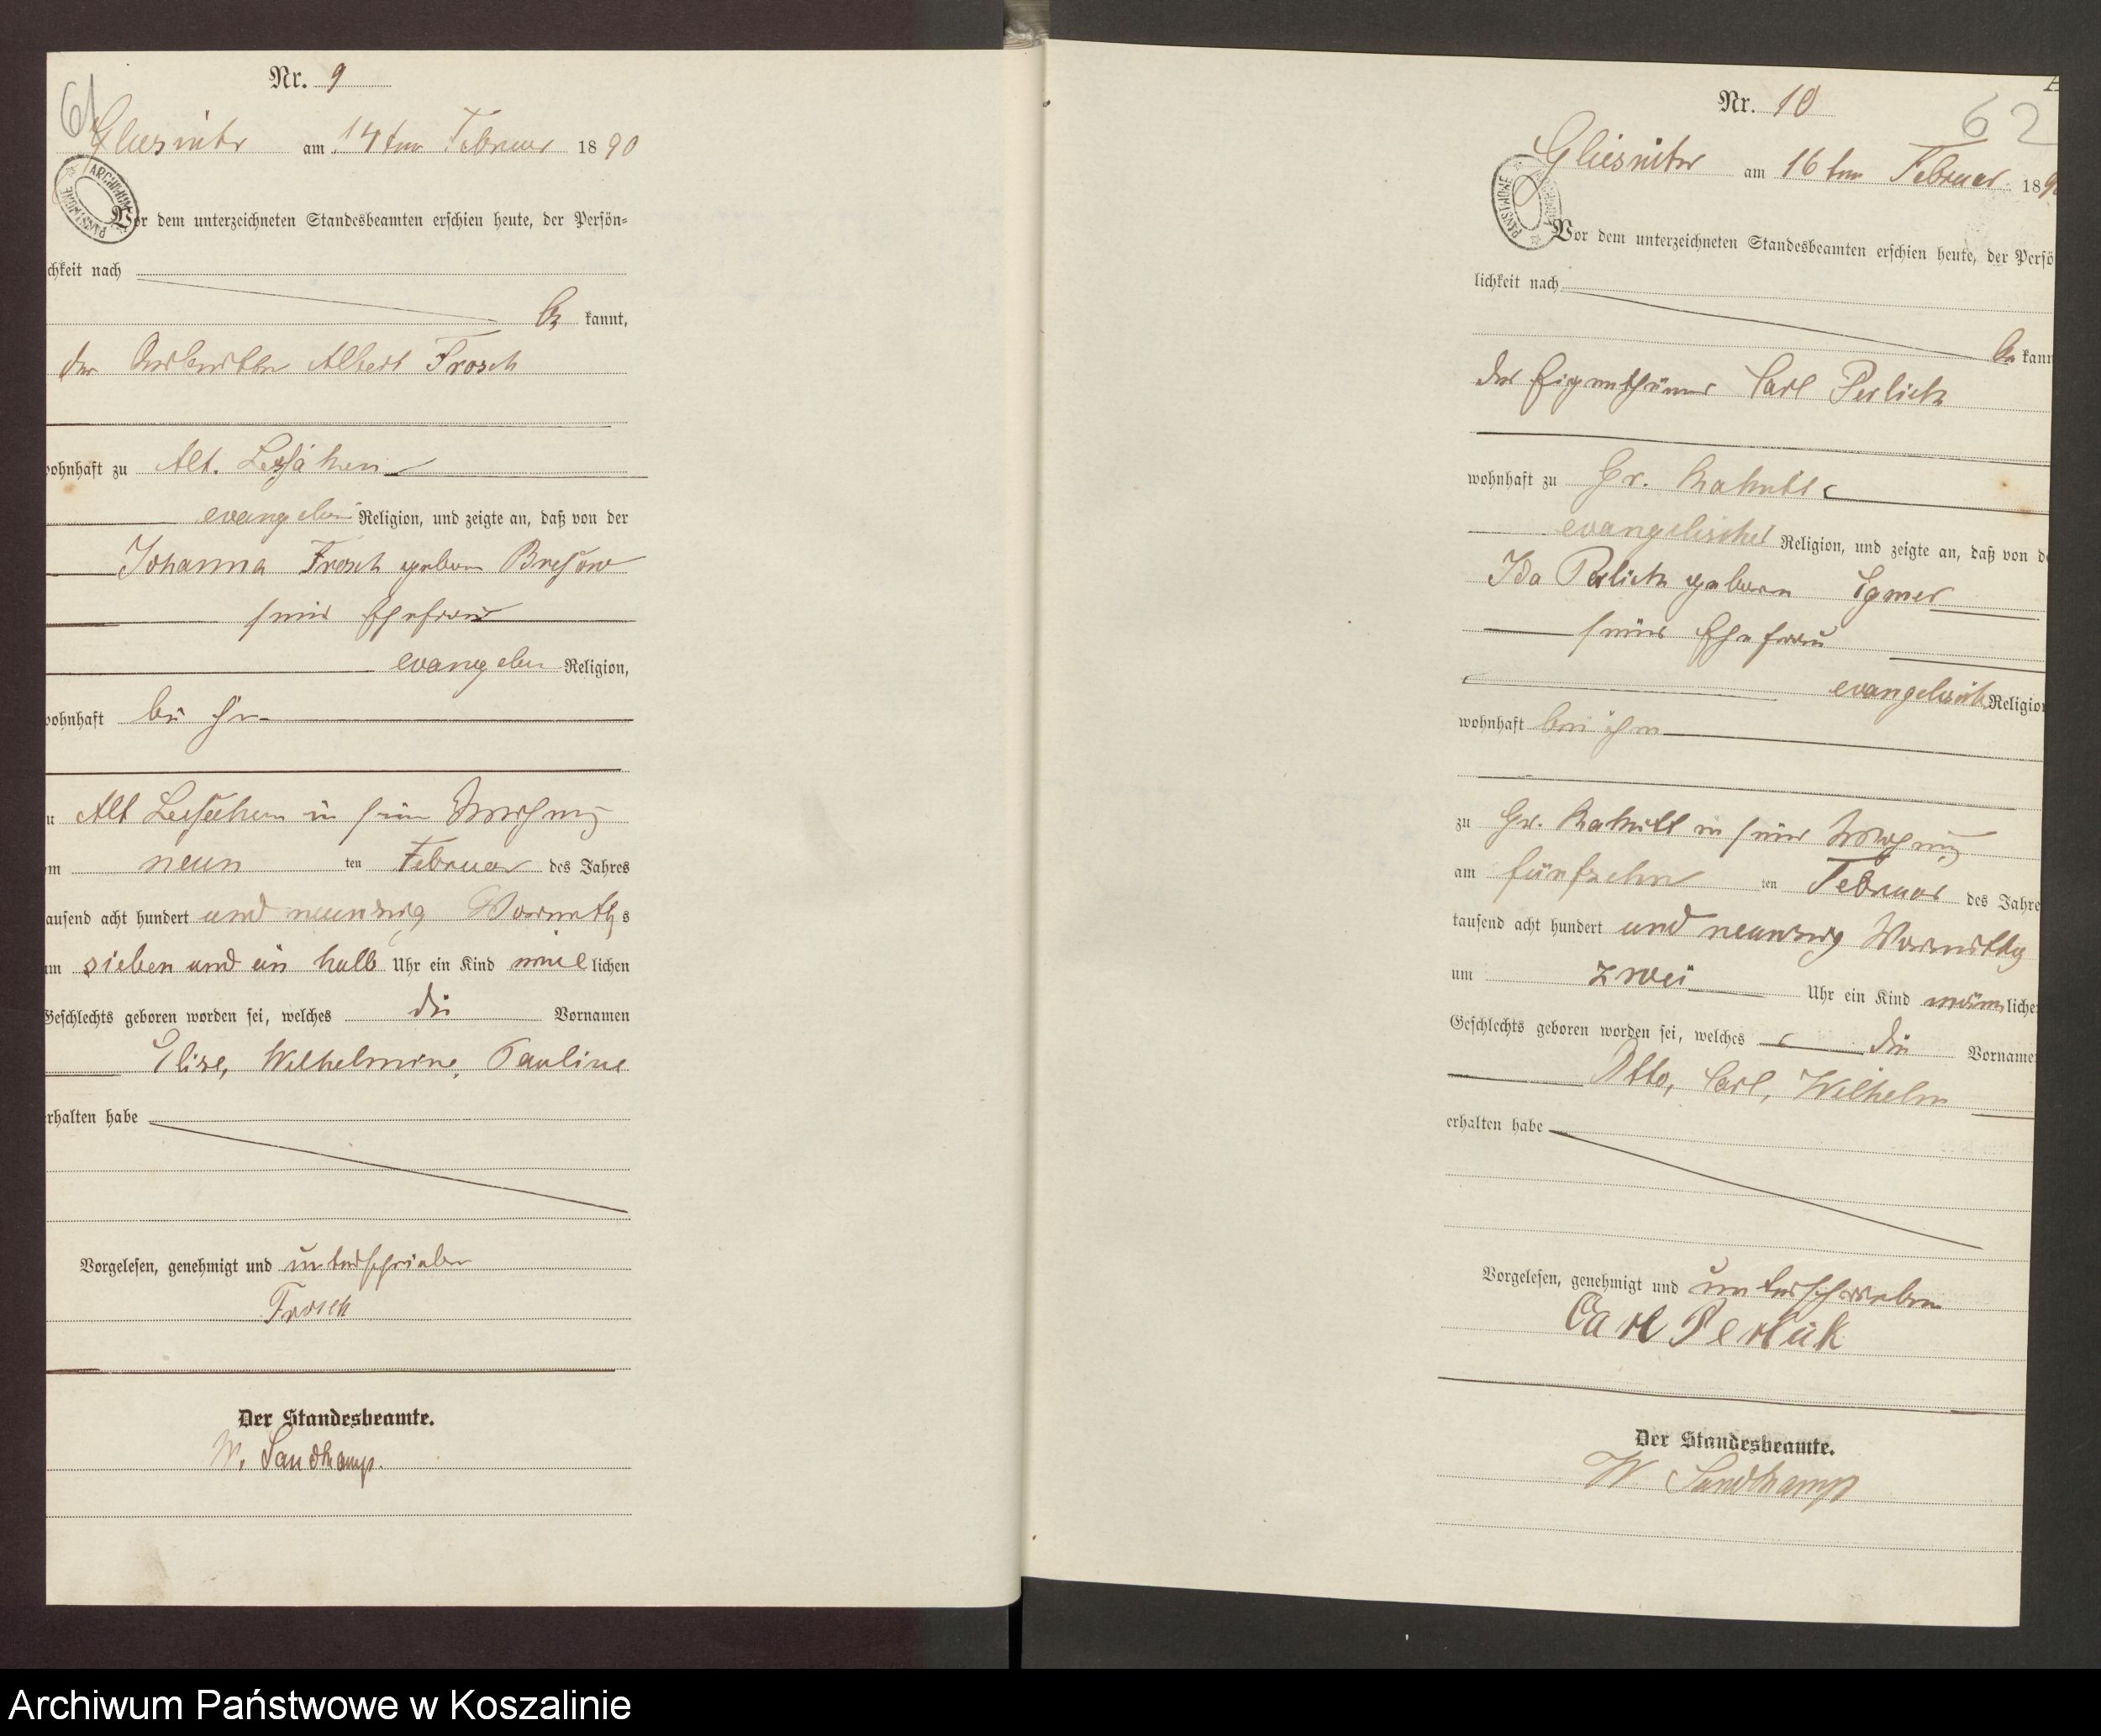 61
Nr. 9
am 14ten Februar 1890
ARCHIWUM PAŃSTWOWE
Vor dem unterzeichneten Standesbeamten erschien heute, der Persön=
chkeit nach
be kannt,
der Albert Frosch
wohnhaft zu Alt.
Religion, und zeigte an, daß von der
Johanna Frosch geboren
seine Ehefrau
Religion,
wohnhaft bei ihm
Alt in seine Wohnung
am neun ten Februar des Jahres
tausend acht hundert und neunzig Vormittags
um sieben und ein halb Uhr ein Kind lichen
Geschlechts geboren worden sei, welches die Vornamen
Elise, Wilhelmine, Pauline
erhalten habe
Vorgelesen, genehmigt und unterschrieben
Frosch
Der Standesbeamte.
W. Sandkamp.
62
Nr. 10
Gliesnitz am 16ten Februar 189
ARCHIWUM PAŃSTWOWE
Vor dem unterzeichneten Standesbeamten erschien heute, der Persö
lichkeit nach
be kann
der Eigenthümer Carl Perlick
wohnhaft zu Gr.
evangelischer Religion, und zeigte an, daß von de
Ida Perlick geboren
seine Ehefrau
Religion
wohnhaft bei ihm
zu Gr. in seiner Wohnung
am fünfzehn ten Februar des Jahre
tausend acht hundert und neunzig Vormittag
um zwei Uhr ein Kind männ liche
Geschlechts geboren worden sei, welches die Vorname
Otto, Carl, Wilhelm
erhalten habe
Vorgelesen, genehmigt und unterschrieben
Carl Perlick
Der Standesbeamte.
W Sandkamp
Archiwum Państwowe w Koszalinie